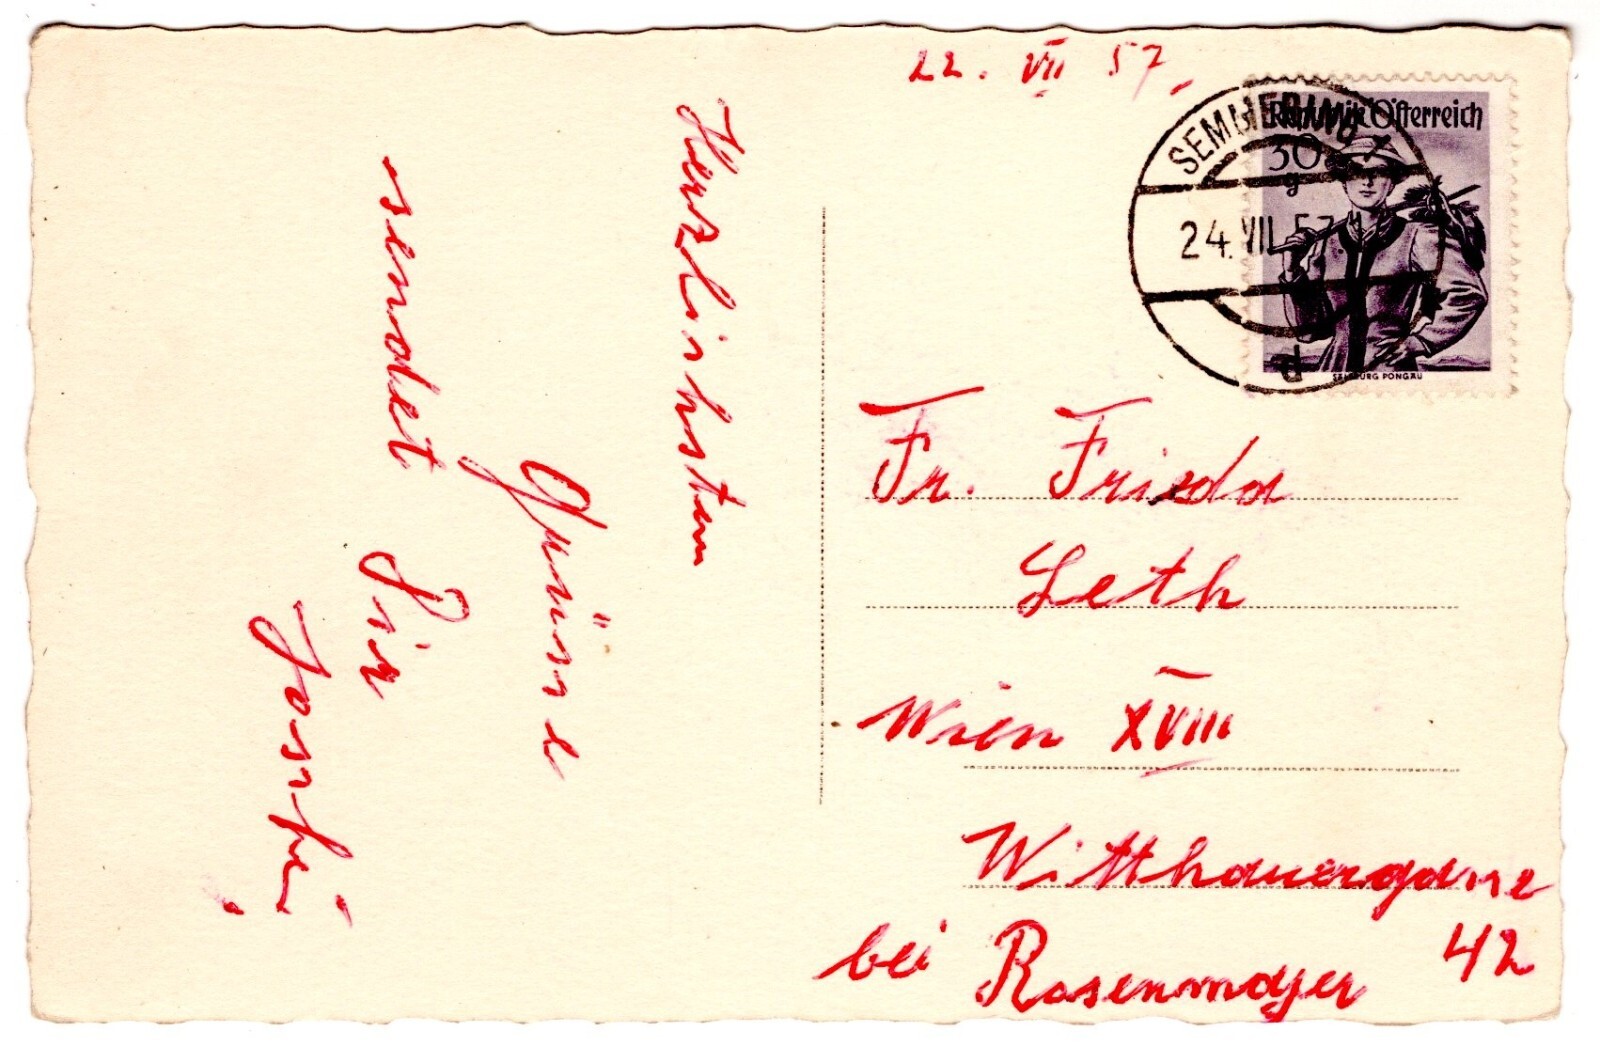 22. VII 57.
SEMMERING
24.VII.57
d
Republik Österreich
30
g
SALZBURG PONGAU
Herzlichsten
Grüsse
sendet Dir
Fr. Frieda
Leth
Wien XVIII
Witthauergasse
42
bei Rosenmayer